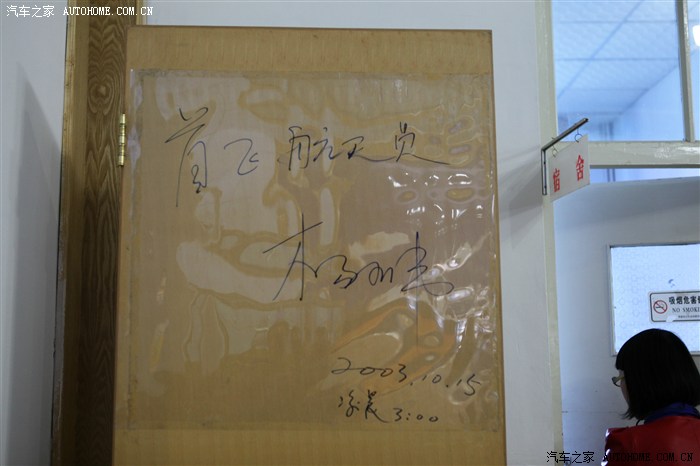 汽车之家 AUTOHOME.COM.CN
首飞航天员
杨利伟
2003.10.15
凌晨3:00
宿舍
吸烟危害
NO SMOKI
汽车之家 AUTOHOME.COM.CN